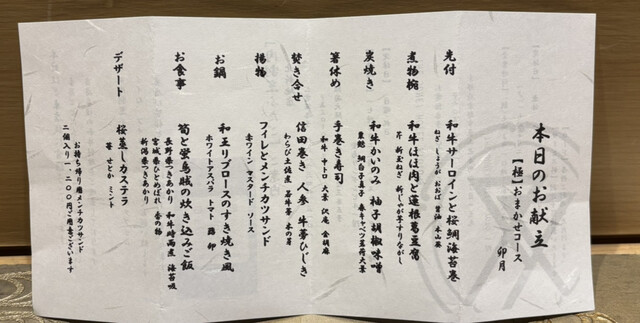 本日のお献立
【極】おまかせコース
卯月
先付
和牛サーロインと桜鯛海苔巻
ねぎ しょうが おおば 醤油 本山葵
煮物椀
和牛ほほ肉と蓮根葛豆腐
芹 新玉ねぎ 新じゃが芋すりながし
炭焼き
和牛かいのみ 柚子胡椒味噌
東鮑 鯛白子真子 春キャベツ 茗荷 大葉
箸休め
手巻き寿司
和牛 中トロ 大葉 沢庵 金胡麻
焚き合せ
信田巻き 人参 牛蒡ひじき
わらび土佐煮 若牛蒡 木の芽
揚物
フイレとメンチカツサンド
赤ワイン マスタード ソース
お鍋
和王リブロースのすき焼き風
ホワイトアスパラ トマト 蕗 卵
お食事
筍と蛍烏賊の炊き込みご飯
長野県つきあかり 和牛時雨煮 海苔吸
宮城県ひとめぼれ 香の物
新潟県つきあかり
デザート
桜蒸しカステラ
苺 せとか ミント
お持ち帰り用メンチカツサンド
二個入り一二〇〇円ご用意ございます